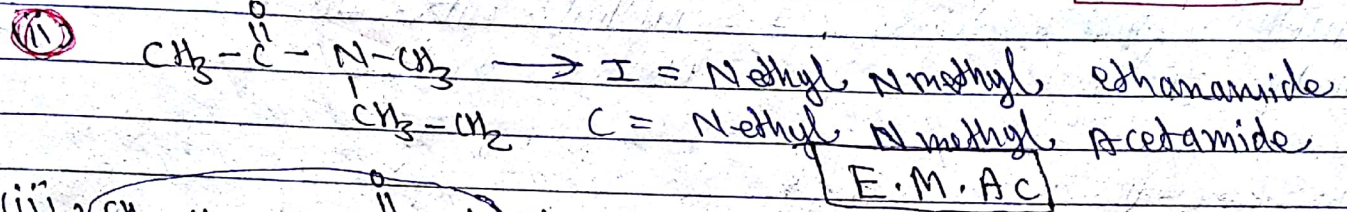 (ii)
O
CH3 - C - N - CH3 → I = N ethyl N methyl ethanamide
CH3 - CH2 C = N-ethyl N methyl Acetamide
E.M.AC
(iii) O